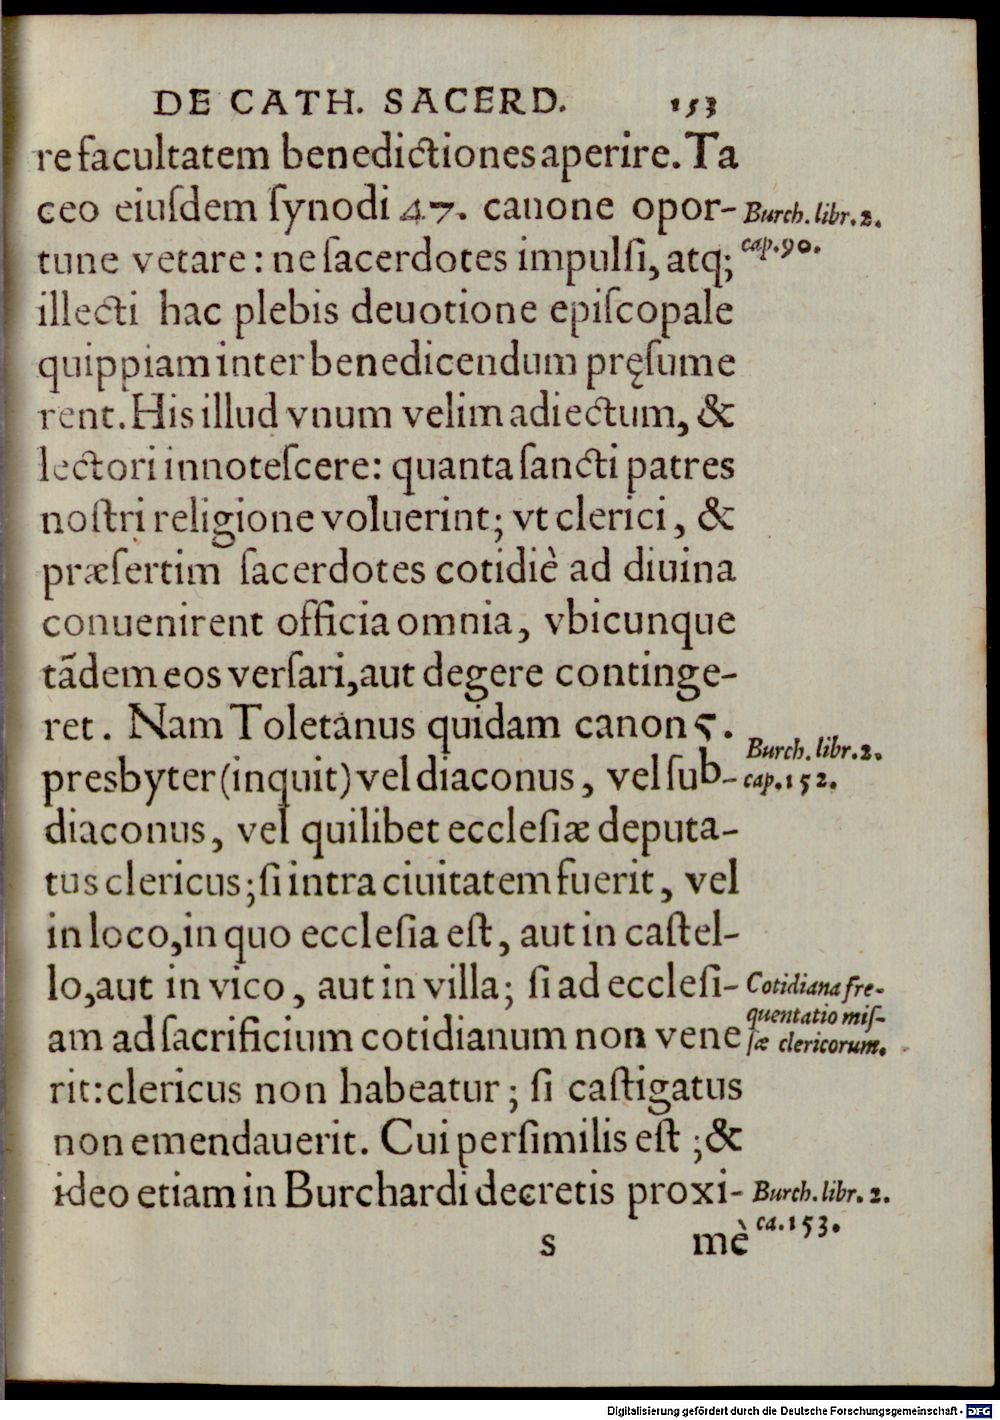 DE CATH. SACERD. 153
re facultatem benedictiones aperire. Ta
ceo eiuſdem ſynodi 47. canone opor-
Burch. libr. 2.
tune vetare: ne ſacerdotes impulſi, atq;
cap. 90.
illecti hac plebis deuotione epiſcopale
quippiam inter benedicendum pręſume
rent. His illud vnum velim adiectum, &
lectori innoteſcere: quanta ſancti patres
noſtri religione voluerint; vt clerici, &
præſertim ſacerdotes cotidiè ad diuina
conuenirent officia omnia, vbicunque
tãdem eos verſari, aut degere continge-
ret. Nam Toletanus quidam canon 5.
Burch. libr. 2.
presbyter (inquit) vel diaconus, vel ſub-
cap. 152.
diaconus, vel quilibet eccleſiæ deputa-
tus clericus; ſi intra ciuitatem fuerit, vel
in loco, in quo eccleſia eſt, aut in caſtel-
lo, aut in vico, aut in villa; ſi ad eccleſi-
Cotidiana fre-
quentatio miſ-
am ad ſacrificium cotidianum non vene
ſæ clericorum.
rit: clericus non habeatur; ſi caſtigatus
non emendauerit. Cui perſimilis eſt; &
ideo etiam in Burchardi decretis proxi-
Burch. libr. 2.
ca. 153.
s mè
Digitalisierung gefördert durch die Deutsche Forschungsgemeinschaft - DFG